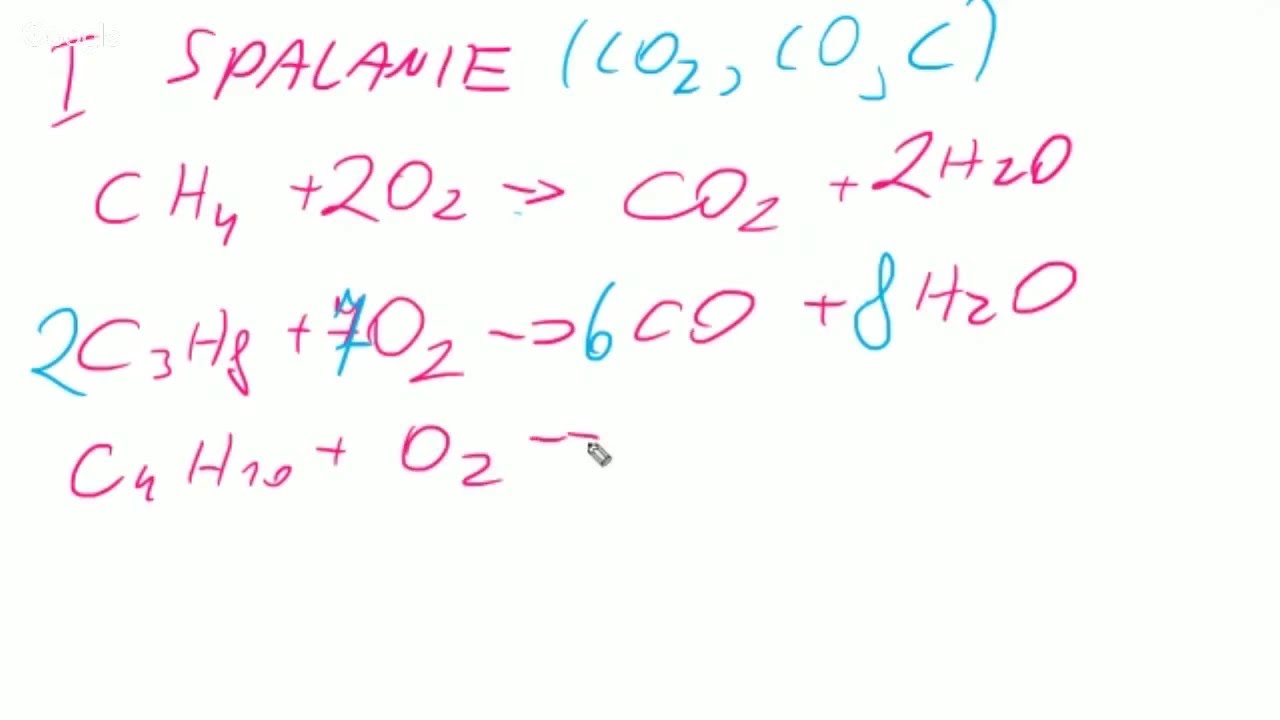 I SPALANIE (CO2, CO, C)
CH4 + 2O2 → CO2 + 2H2O
2C3H8 + 7O2 → 6CO + 8H2O
C4H10 + O2 —